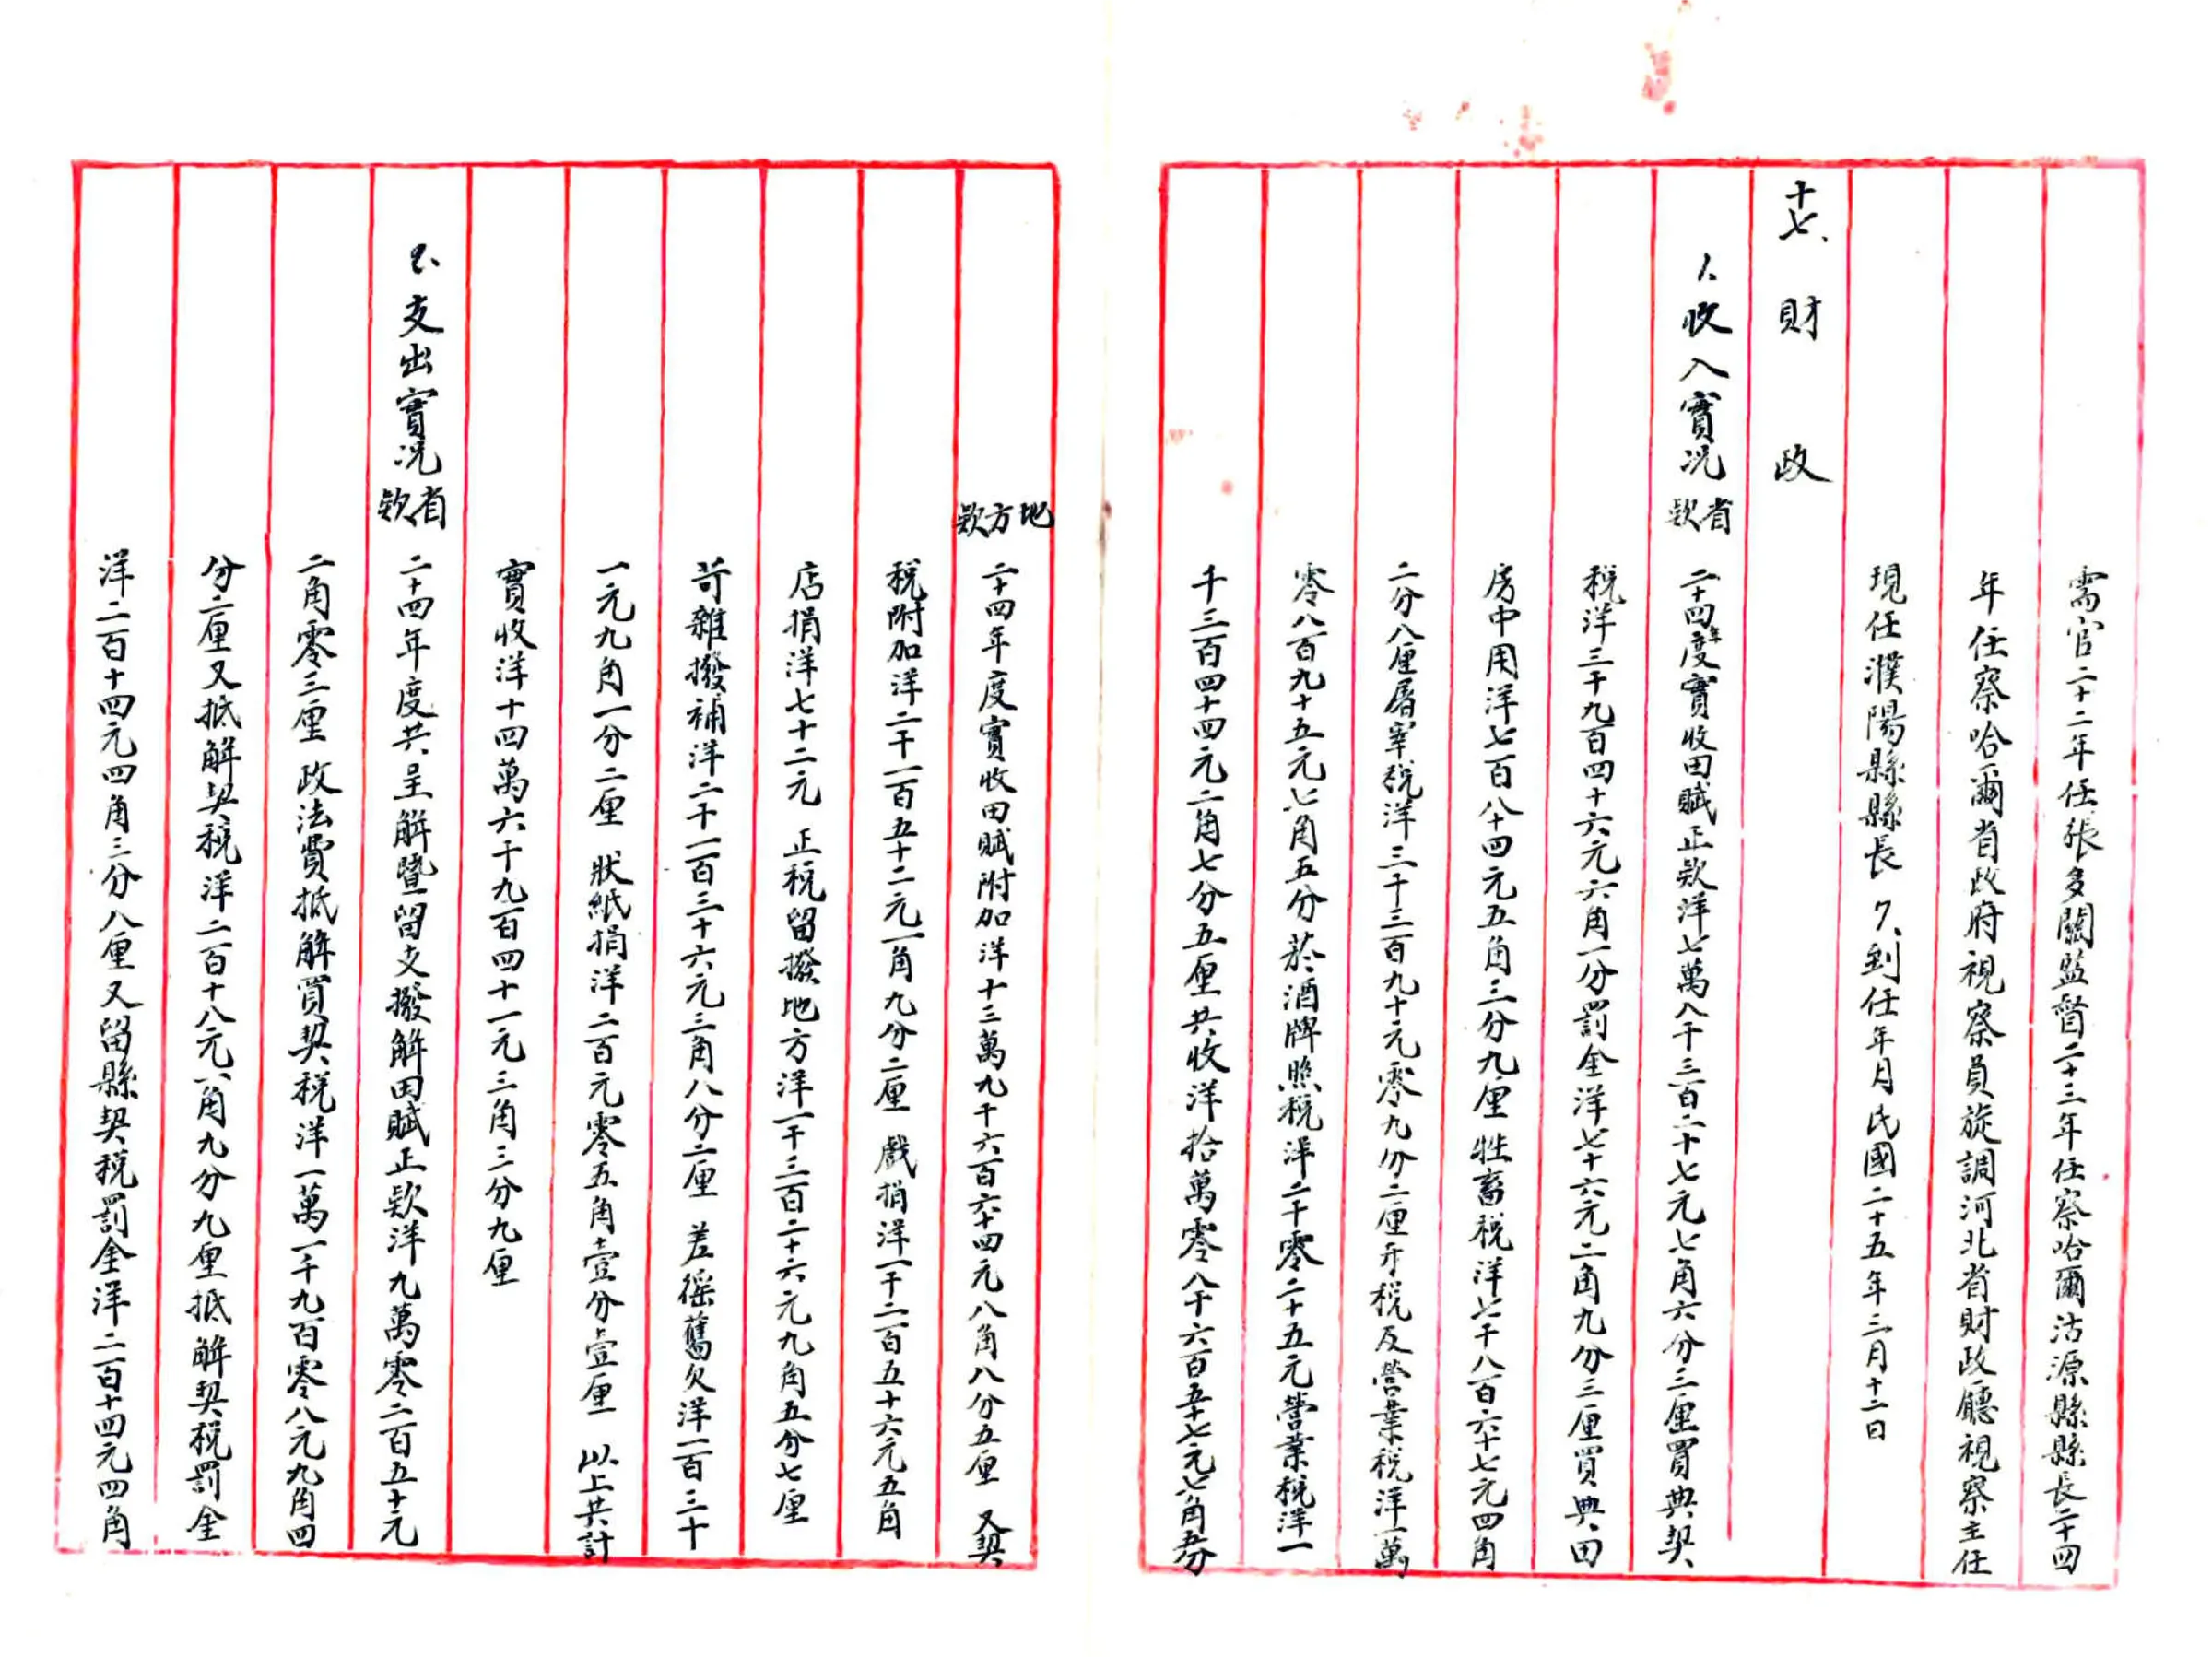 需官二十二年任張多關監督二十三年任察哈爾沽源縣縣長二十四
年任察哈爾省政府視察員旋調河北省財政廳視察主任
現任濮陽縣縣長 7、到任年月民國二十五年三月十二日
十七、財政
1、收入實况 省款 二十四年度實收田賦正款洋七萬八千三百二十七元七角六分三厘買典契
税洋三千九百四十六元六角一分罰金洋七十六元二角九分三厘買典田
房中用洋七百八十四元五角三分九厘 牲畜税洋七千八百六十七元四角
二分八厘屠宰税洋三千三百九十元零九分二厘牙税及營業税洋一萬
零八百九十五元七角五分菸酒牌照税洋二千零二十五元營業税洋一
千三百四十四元二角七分五厘共收洋拾萬零八千六百五十七元七角五分
地方款 二十四年度實收田賦附加洋十三萬九千六百六十四元八角八分五厘 又契
税附加洋二千一百五十二元一角九分二厘 戲捐洋一千二百五十六元五角
店捐洋七十二元 正税留撥地方洋一千三百二十六元九角五分七厘
苛雜撥補洋二千一百三十六元三角八分二厘 差徭舊欠洋一百三十
一元九角一分二厘 狀紙捐洋二百元零五角壹分壹厘 以上共計
實收洋十四萬六千九百四十一元三角三分九厘
2、支出實况 省款 二十四年度共呈解曁留支撥解田賦正款洋九萬零二百五十三元
二角零三厘 政法費抵解買契税洋一萬一千九百零八元九角四
分二厘又抵解契税洋二百十八元八角九分九厘抵解契税罰金
洋二百十四元四角三分八厘又留縣契税罰金洋二百十四元四角